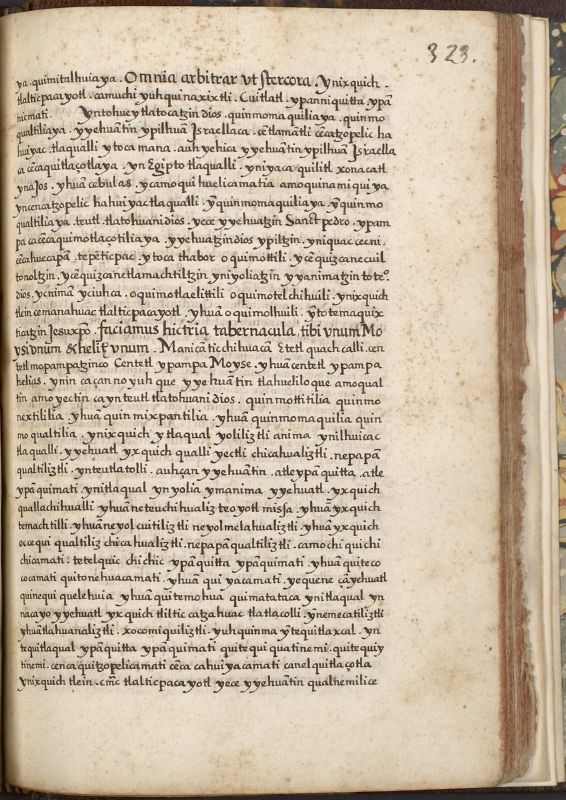 323.
ya. quimitalhuiaya. Omnia arbitrar vt stercora. ynixquich
tlalticpacayotl. camuchi yuhquinaxixtli. Cuitlatl. ypanniquitta ypā
nicmati. yntohueytlatocatzin dios. quinmomaquiliaya. quinmo
qualtiliaya. yyehuātin ypilhuā Israellaca. cētlamātli cēcatzopelic ha
huiyac. tlaqualli ytocamana. auh yehica yyehuātin ypilhuā Israella
ca cēcaquitlaçotlaya. yn Egipto tlaqualli. yniyaca quilitl xonacatl
ynajos. yhuā cebullas. ycamoquihuelicamatia amoquinamiquiya
yncencatzopelic hahuiyac tlaqualli. ȳquinmomaquiliaya. ȳquinmo
qualtiliaya. teutl. tlatohuanidios. yece yyehuatzin Sanct pedro. ypam
pa cacēcaquimotlaçotiliaya. yyehuatzindios ypiltzin. yniquac cecni.
cēcahuecapā. tepēticpac. ytoca thabor oquimottili. ycēquizcanecuil
tonoltzin. ycēquizcanetlamachtiltzin yniyoliatzin yyanimatzin toteᵒ.
dios. ycnimā yciuhca. oquimotlaelittili oquimotelchihuili. ynixquich
tlein cemanahuac tlalticpacayotl. yhuā oquimolhuili. ȳtotemaquix
ticatzin Jesuxp̄o. faciamus hic tria tabernacula, tibi vnum Mo
ysi vnum & heliȩ vnum. Manicā ticchihuacā Etetl quachcalli. cen
tetl mopampatzinco Centetl ypampa Moyse. yhuā centetl ypampa
helias. ynin caçannoyuh que yyehuātin tlahueliloque amoqual
tin amoyectin caynteutl tlatohuani dios. quinmottitilia quinmo
nextililia. yhuā quinmixpantilia. yhuā quinmomaquilia quin
moqualtilia. ynixquich ytlaqual yoliliztli anima ynilhuicac
tlaqualli. yyehuatl yxquich qualli yectli chicahualiztli. nepapā
qualtiliztli. ynteutlatolli. auhçan yyehuātin. atleypāquitta. atle
ypāquimati. ynitlaqual ynyolia ymanima yyehuatl. yxquich
quallachihualli yhuā neteuchihualiz teoyotl missa. yhuā yxquich
temachtilli. yhuā neyolcuitiliztli neyolmelahualiztli. yhuā yxquich
ococequi qualtiliz chicahualiztli. nepapā qualtiliztli. camochi quichi
chicamati. tetelquic chichic ypāquitta ypāquimati. yhuā quiteco
cocamati quitonehuacamati. yhuā quiyacamati. yequene çāyehuatl
quinequi quelehuia yhuā quitemohua quimatataca ynitlaqual yn
nacayo yyehuatl yxquich tliltic catzahuac tlatlacolli. ȳnemecatiliztli
yhuā tlahuanaliztli. xocomiquiliztli. yuhquinma ȳtequitlaxcal. yn
tequitlaqual ypāquitta ypāquimati quitequi quatinemi. quitequiy
tinemi. cenca quitzopelicamati cēca cahuiyacamati canelquitlaçotla
ynixquich tlein. cmc̄ tlalticpacayotl yece yyehuātin qualnemilice